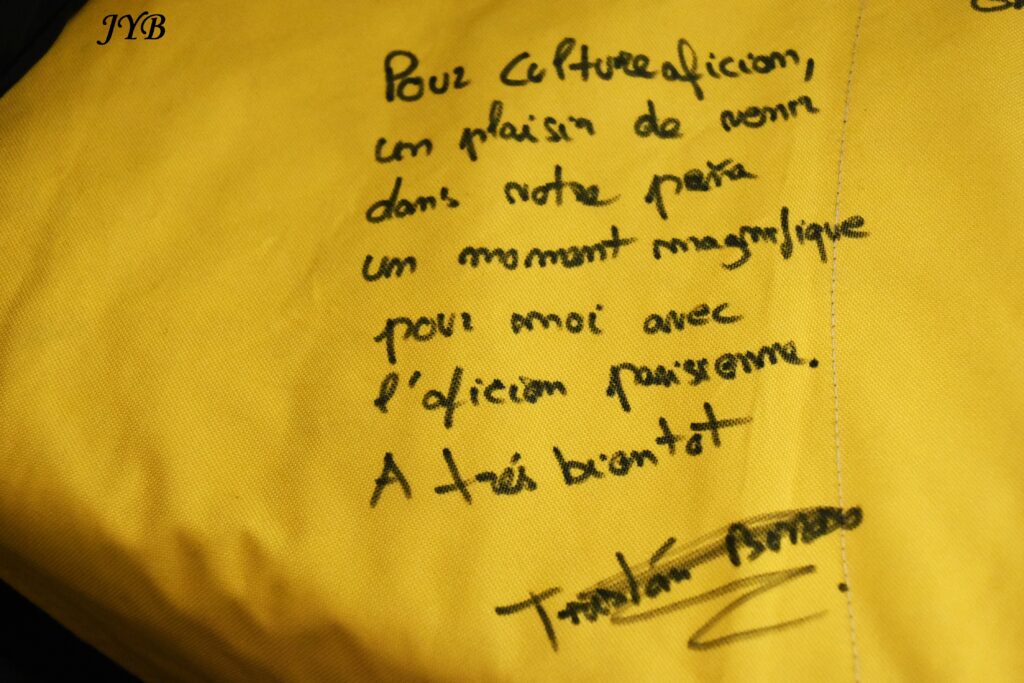 JYB
Pour Cultureaficion,
un plaisir de venir
dans votre peña
un moment magnifique
pour moi avec
l'aficion parisienne.
A trés bientot
Tristán Barroso.